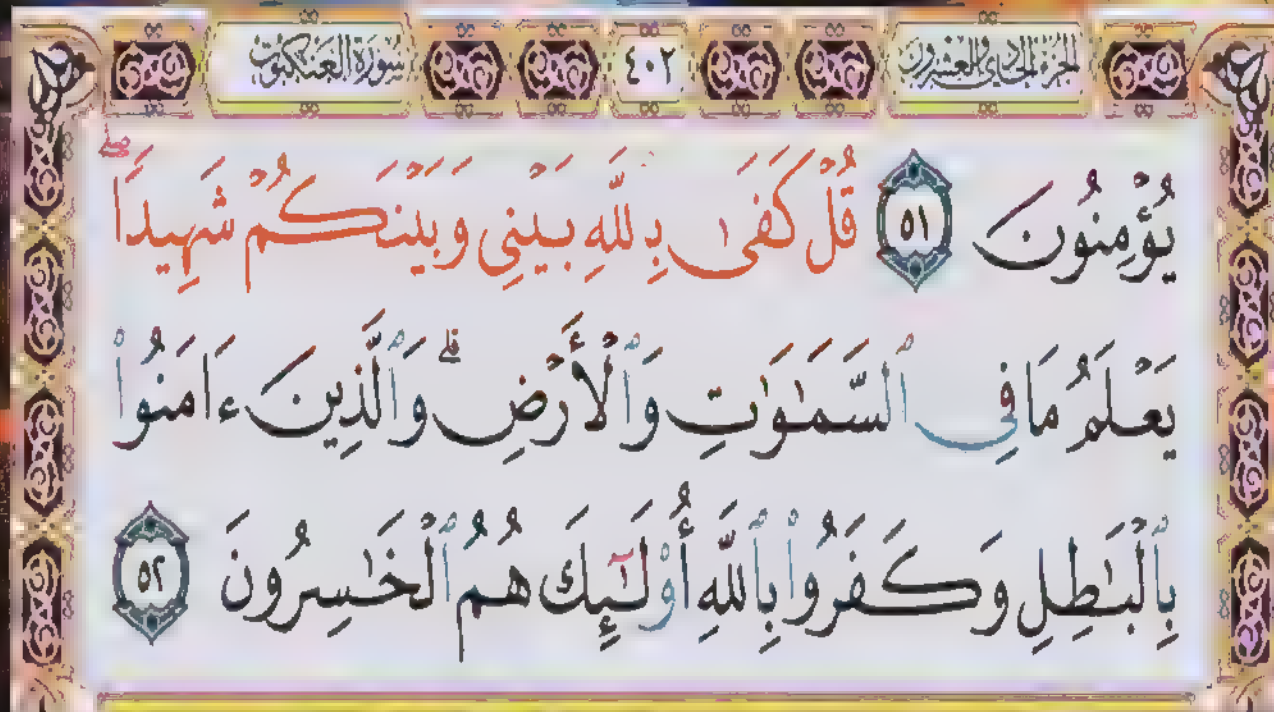 الجزء الحادي والعشرون ٤٠٢ سورة العنكبوت
يُؤْمِنُونَ ٥١ قُلْ كَفَىٰ بِٱللَّهِ بَيْنِي وَبَيْنَكُمْ شَهِيدًاۖ
يَعْلَمُ مَا فِي ٱلسَّمَٰوَٰتِ وَٱلْأَرْضِۗ وَٱلَّذِينَ ءَامَنُوا۟
بِٱلْبَٰطِلِ وَكَفَرُوا۟ بِٱللَّهِ أُو۟لَٰٓئِكَ هُمُ ٱلْخَٰسِرُونَ ٥٢